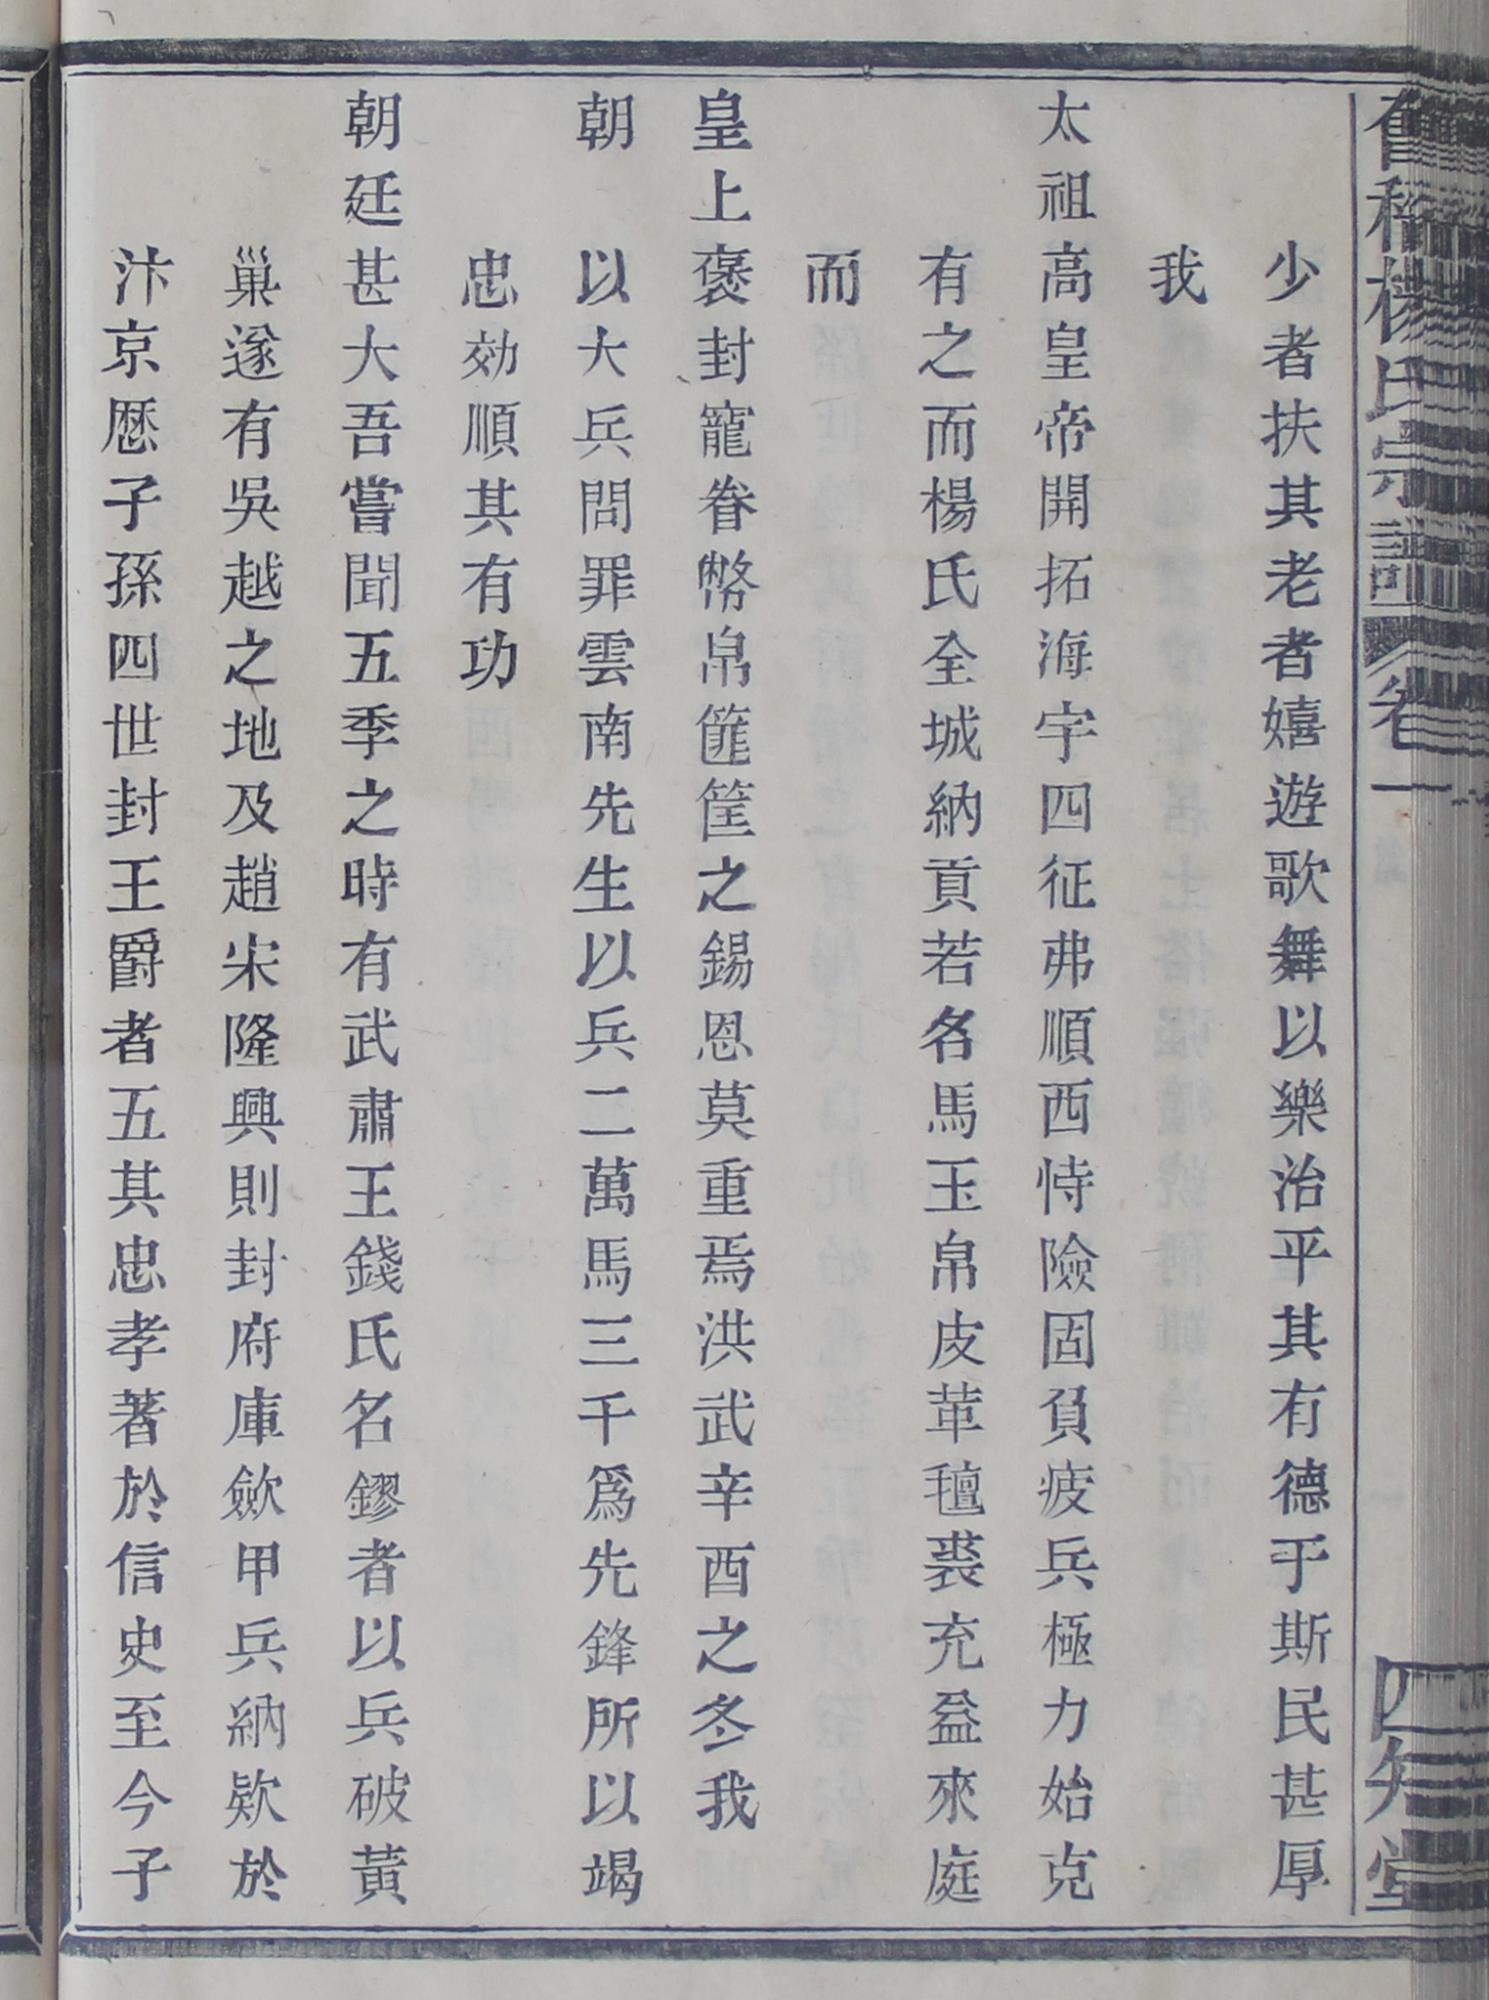 楊氏宗譜 卷一 四知堂
少者扶其老者嬉遊歌舞以樂治平其有德于斯民甚厚
我
太祖高皇帝開拓海宇四征弗順西恃險固負疲兵極力始克
有之而楊氏全城納貢若名馬玉帛皮革氊裘充益來庭
而
皇上褒封寵眷幣帛篚筐之錫恩莫重焉洪武辛酉之冬我
朝以大兵問罪雲南先生以兵二萬馬三千爲先鋒所以竭
忠効順其有功
朝廷甚大吾嘗聞五季之時有武肅王錢氏名鏐者以兵破黃
巢遂有吳越之地及趙宋隆興則封府庫歛甲兵納欵於
汴京厯子孫四世封王爵者五其忠孝著於信史至今子